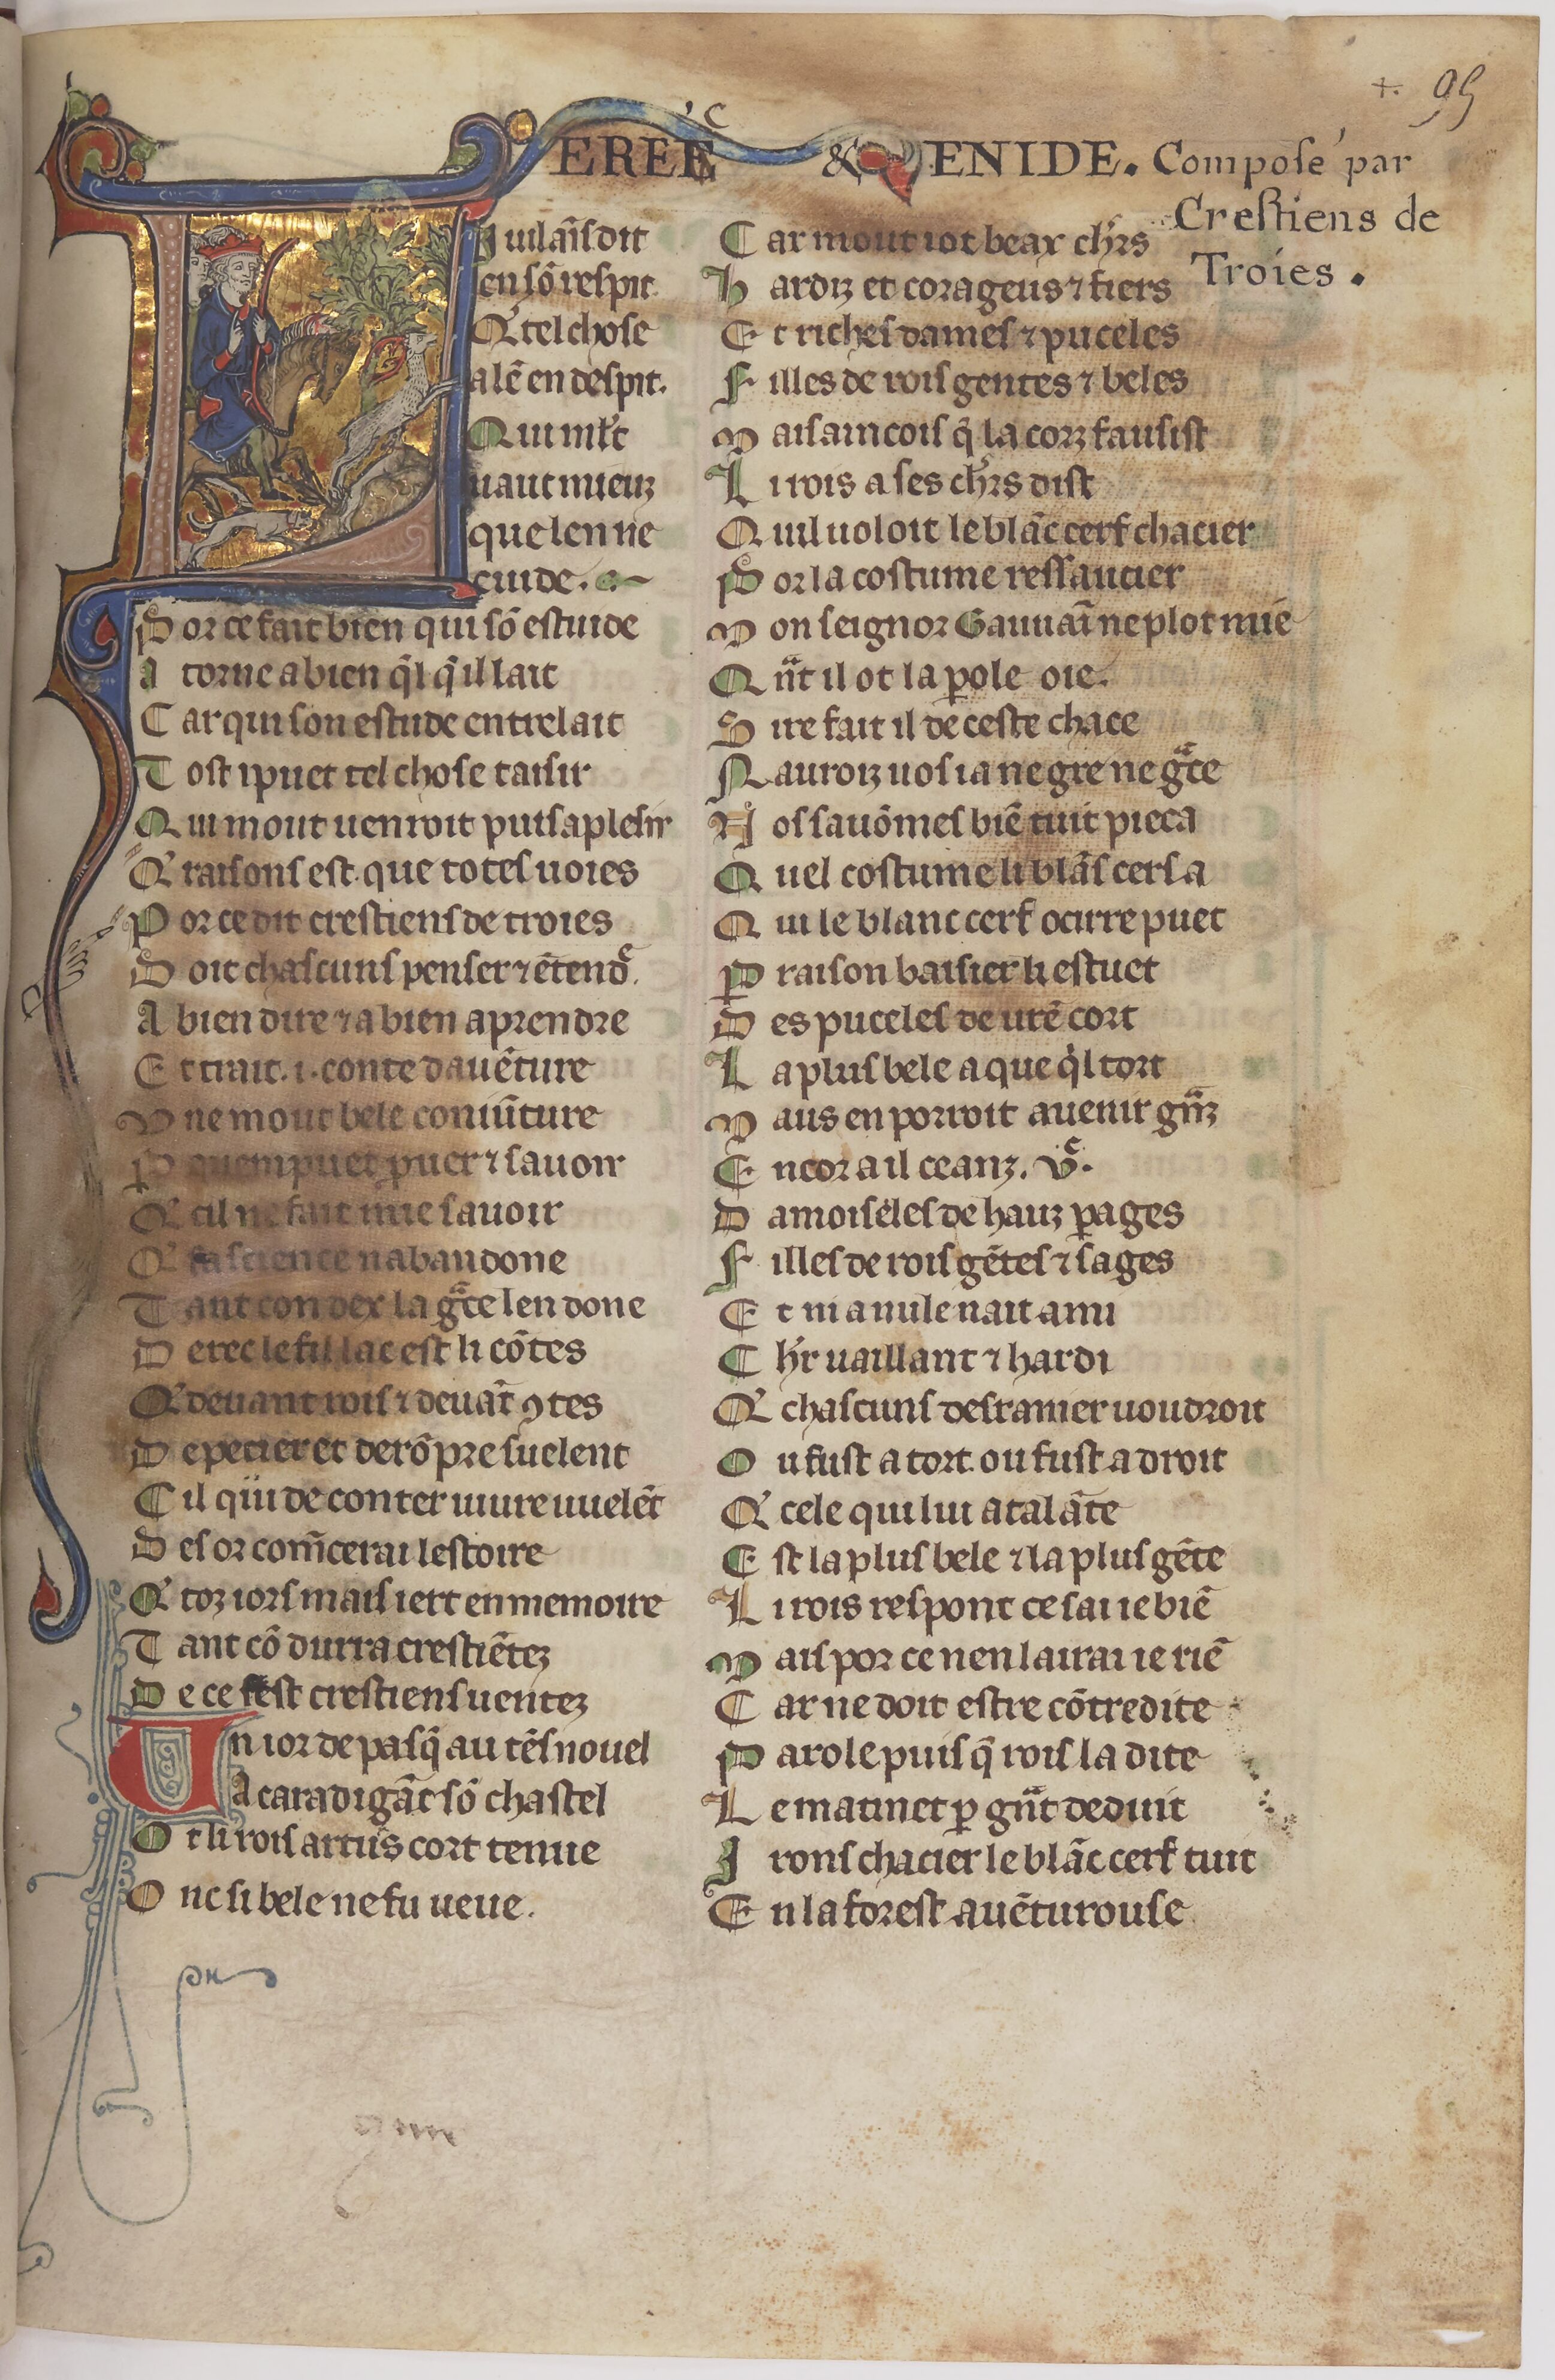 +. 95
EREEC & ENIDE. Composé par
Crestiens de
Troies.
Li uilaīs dit
en sō respit
Q' tel chose
a lē en despit.
Qui ml't
uaut mieuz
que len ne
cuide.
Por ce fait bien qui sō estuide
A torne a bien q̄l q̄ il lait
Car qui son estude entrelait
Tost i puet tel chose taisir
Qui mout uenroit puis a plesir
Q' raisons est que totes uoies
Por ce dit crestiens de troies
Doit chascuns penser ⁊ ētend'.
A bien dire ⁊ a bien aprendre
Et trait .i. conte dauēture
Vne mout bele coniūture
P quem puet ꝓuer ⁊ sauoir
Q' cil ne fait mie sauoir
Q' sa science nabandone
Tant con dex la gͣce len done
Derec le fil lac est li cōtes
Q' deuant rois ⁊ deuāt ꝯtes
Depecier et derōpre suelent
Cil qui de conter uiure uuelēt
Des or com̄cerai lestoire
Q' toz iors mais iert en memoire
Tant cō durra crestiētez
De ce sest crestiens uentez
Un ior de pasq̄ au tēs nouel
A caradigāt sō chastel
Ot li rois artus cort tenue
Onc si bele ne fu ueue.
Car mout i ot beax ch'rs
Hardiz et corageus ⁊ fiers
Et riches dames ⁊ puceles
Filles de rois gentes ⁊ beles
Mais aincois q̄ la corz fausist
Li rois a ses ch'rs dist
Quil uoloit le blāc cerf chacier
Por la costume ressaucier
Mon seignor Gauuaī ne plot mie
Qn̄t il ot la ꝑole oie.
Sire fait il de ceste chace
Nauroiz uos ia ne gre ne gͣce
Nos sauōmes biē tuit pieca
Quel costume li blās cers a
Qui le blanc cerf ocirre puet
P raison baisier li estuet
Des puceles de utē cort
La plus bele a que q̄l tort
Maus en porroit auenir gn̄z
Encor a il ceanz .v.ͨ
Damoiseles de hauz ꝑages
Filles de rois gētes ⁊ sages
Et ni a nule nait ami
Ch'r uaillant ⁊ hardi
Q' chascuns desranier uoudroit
Ou fust a tort. ou fust a droit
Q' cele qui lui atalāte
Est la plus bele ⁊ la plus gēte
Li rois respont ce sai ie biē
Mais por ce nen lairai ie riē
Car ne doit estre cōtredite
Parole puis q̄ rois la dite
Le matinet ꝑ gn̄t deduit
Irons chacier le blāc cerf tuit
En la forest auēturouse